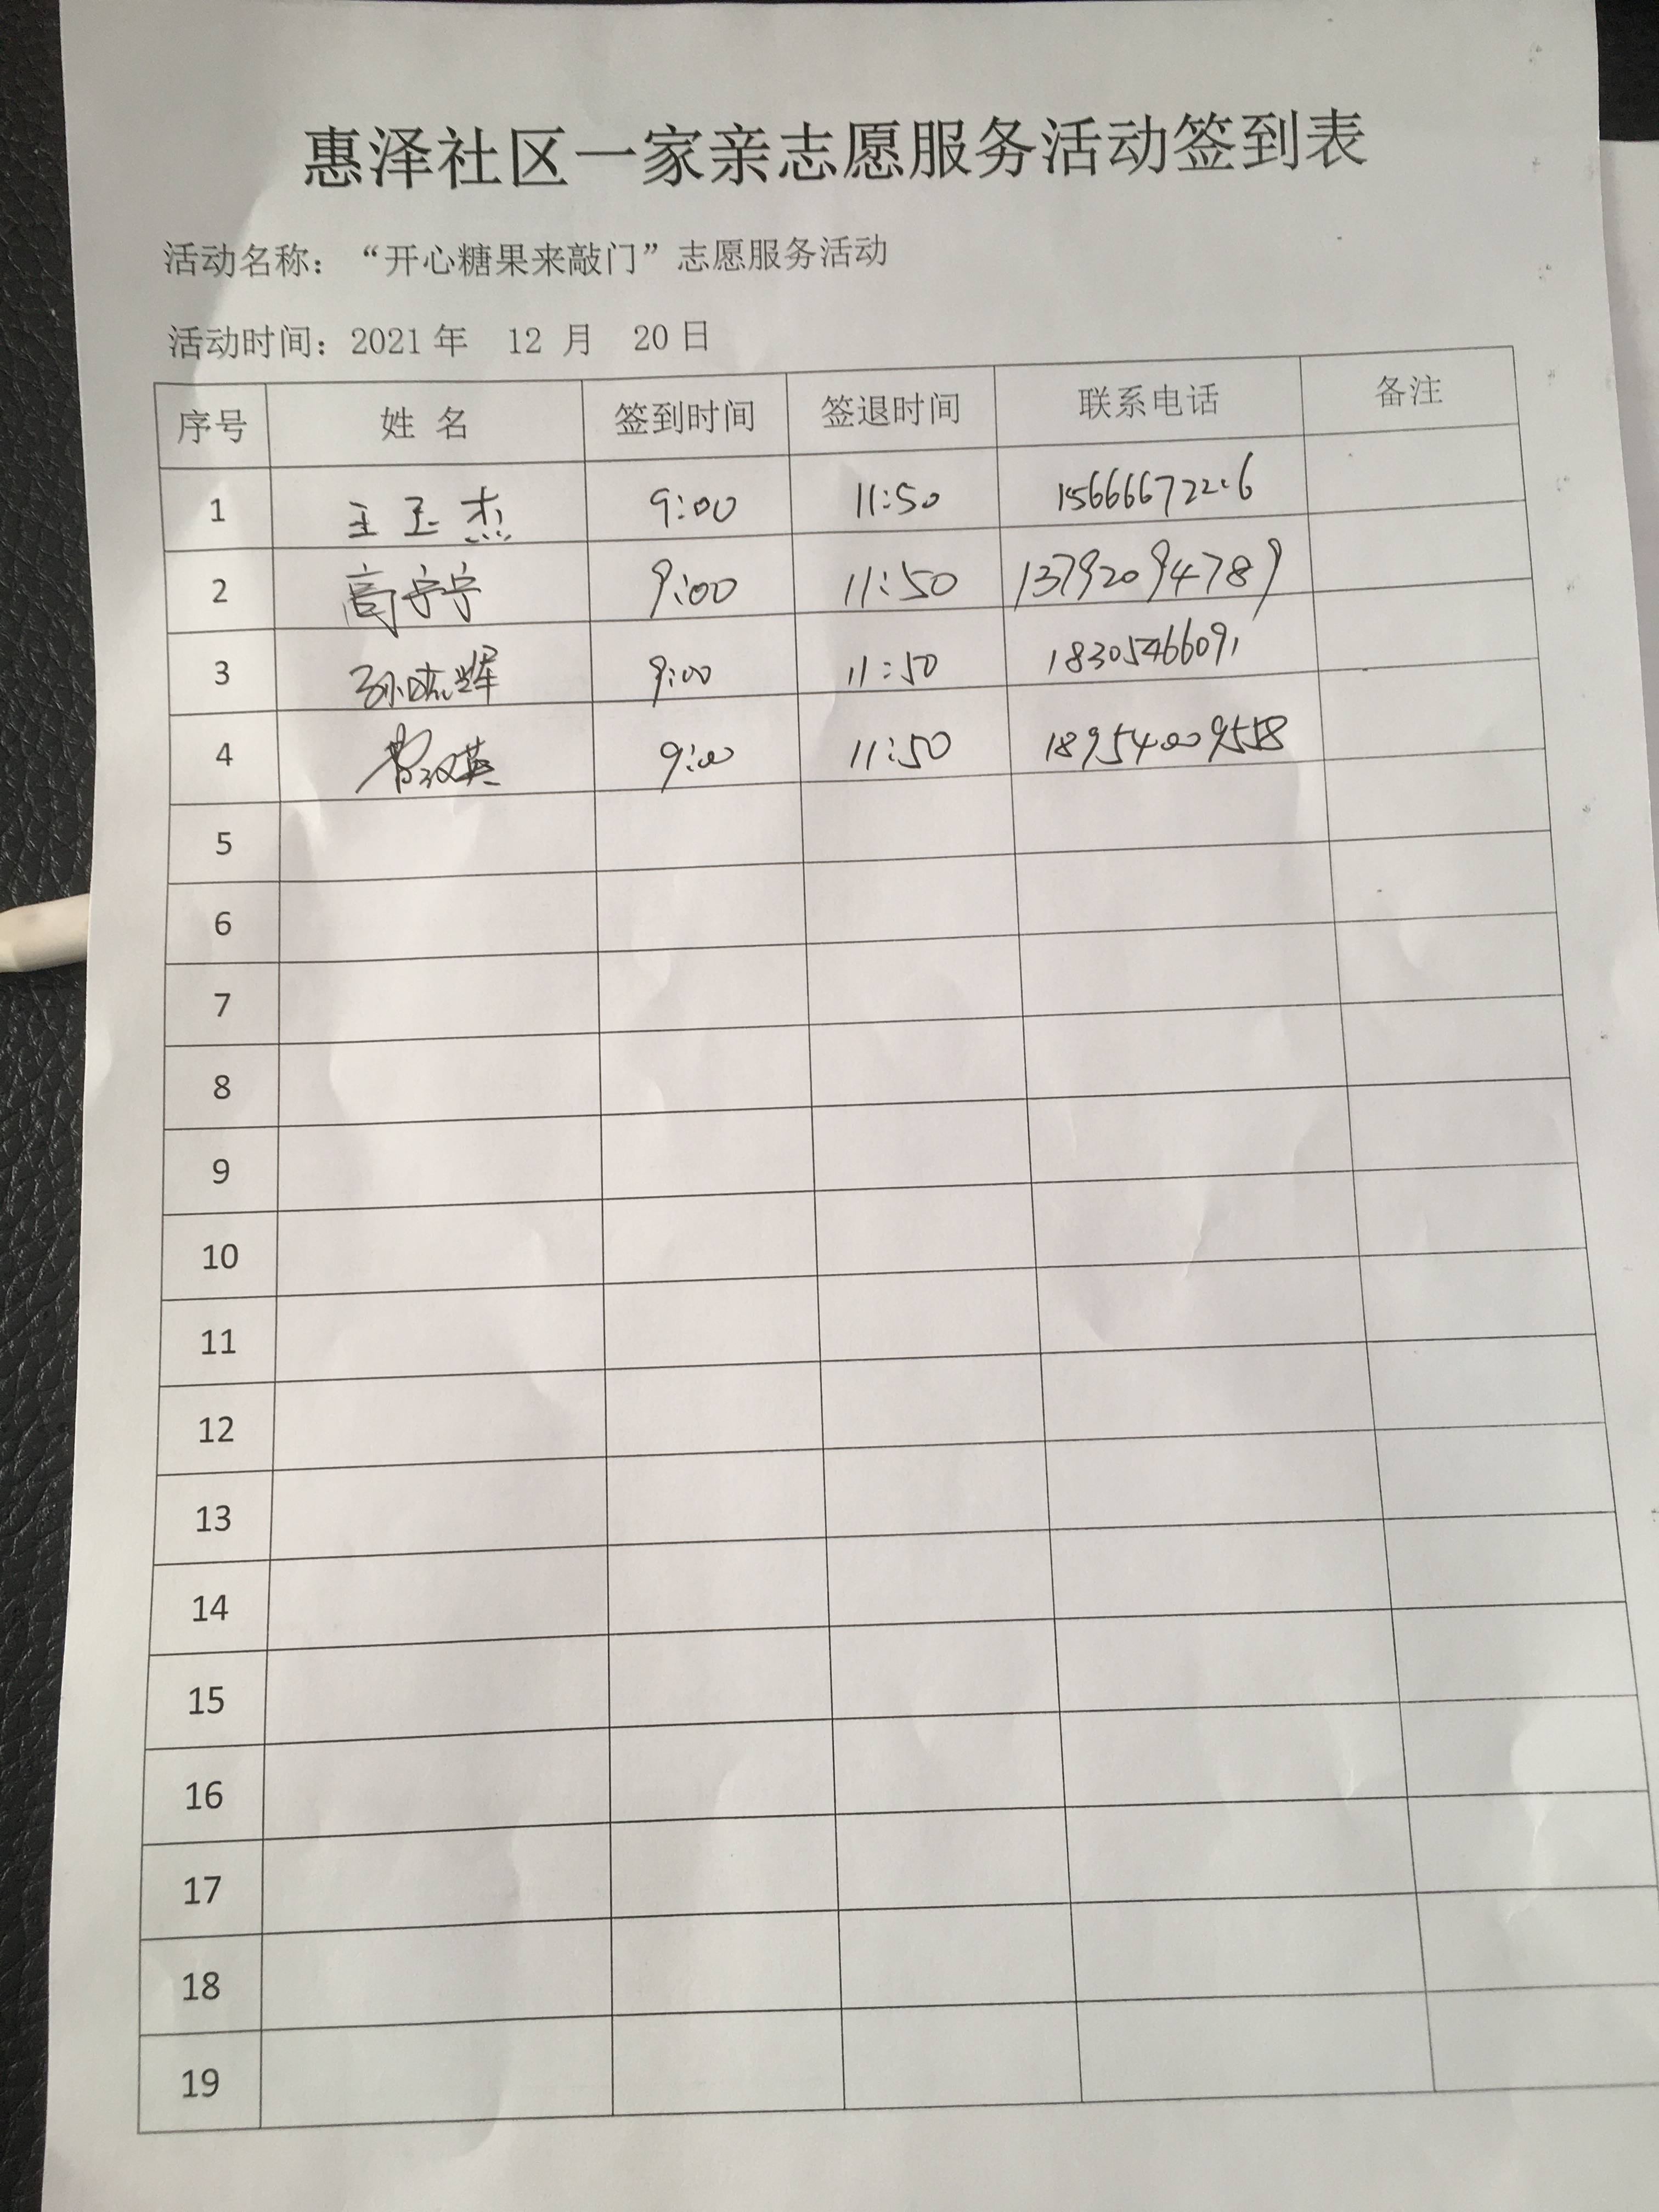 惠泽社区一家亲志愿服务活动签到表
活动名称：“开心糖果来敲门”志愿服务活动
活动时间：2021年 12 月 20日
序号 姓 名 签到时间 签退时间 联系电话 备注
1 王玉杰 9:00 11:50
2 高宁宁 9:00 11:50 13792094789
3 9:00 11:50 18305466091
4 9:00 11:50 18954009558
5
6
7
8
9
10
11
12
13
14
15
16
17
18
19